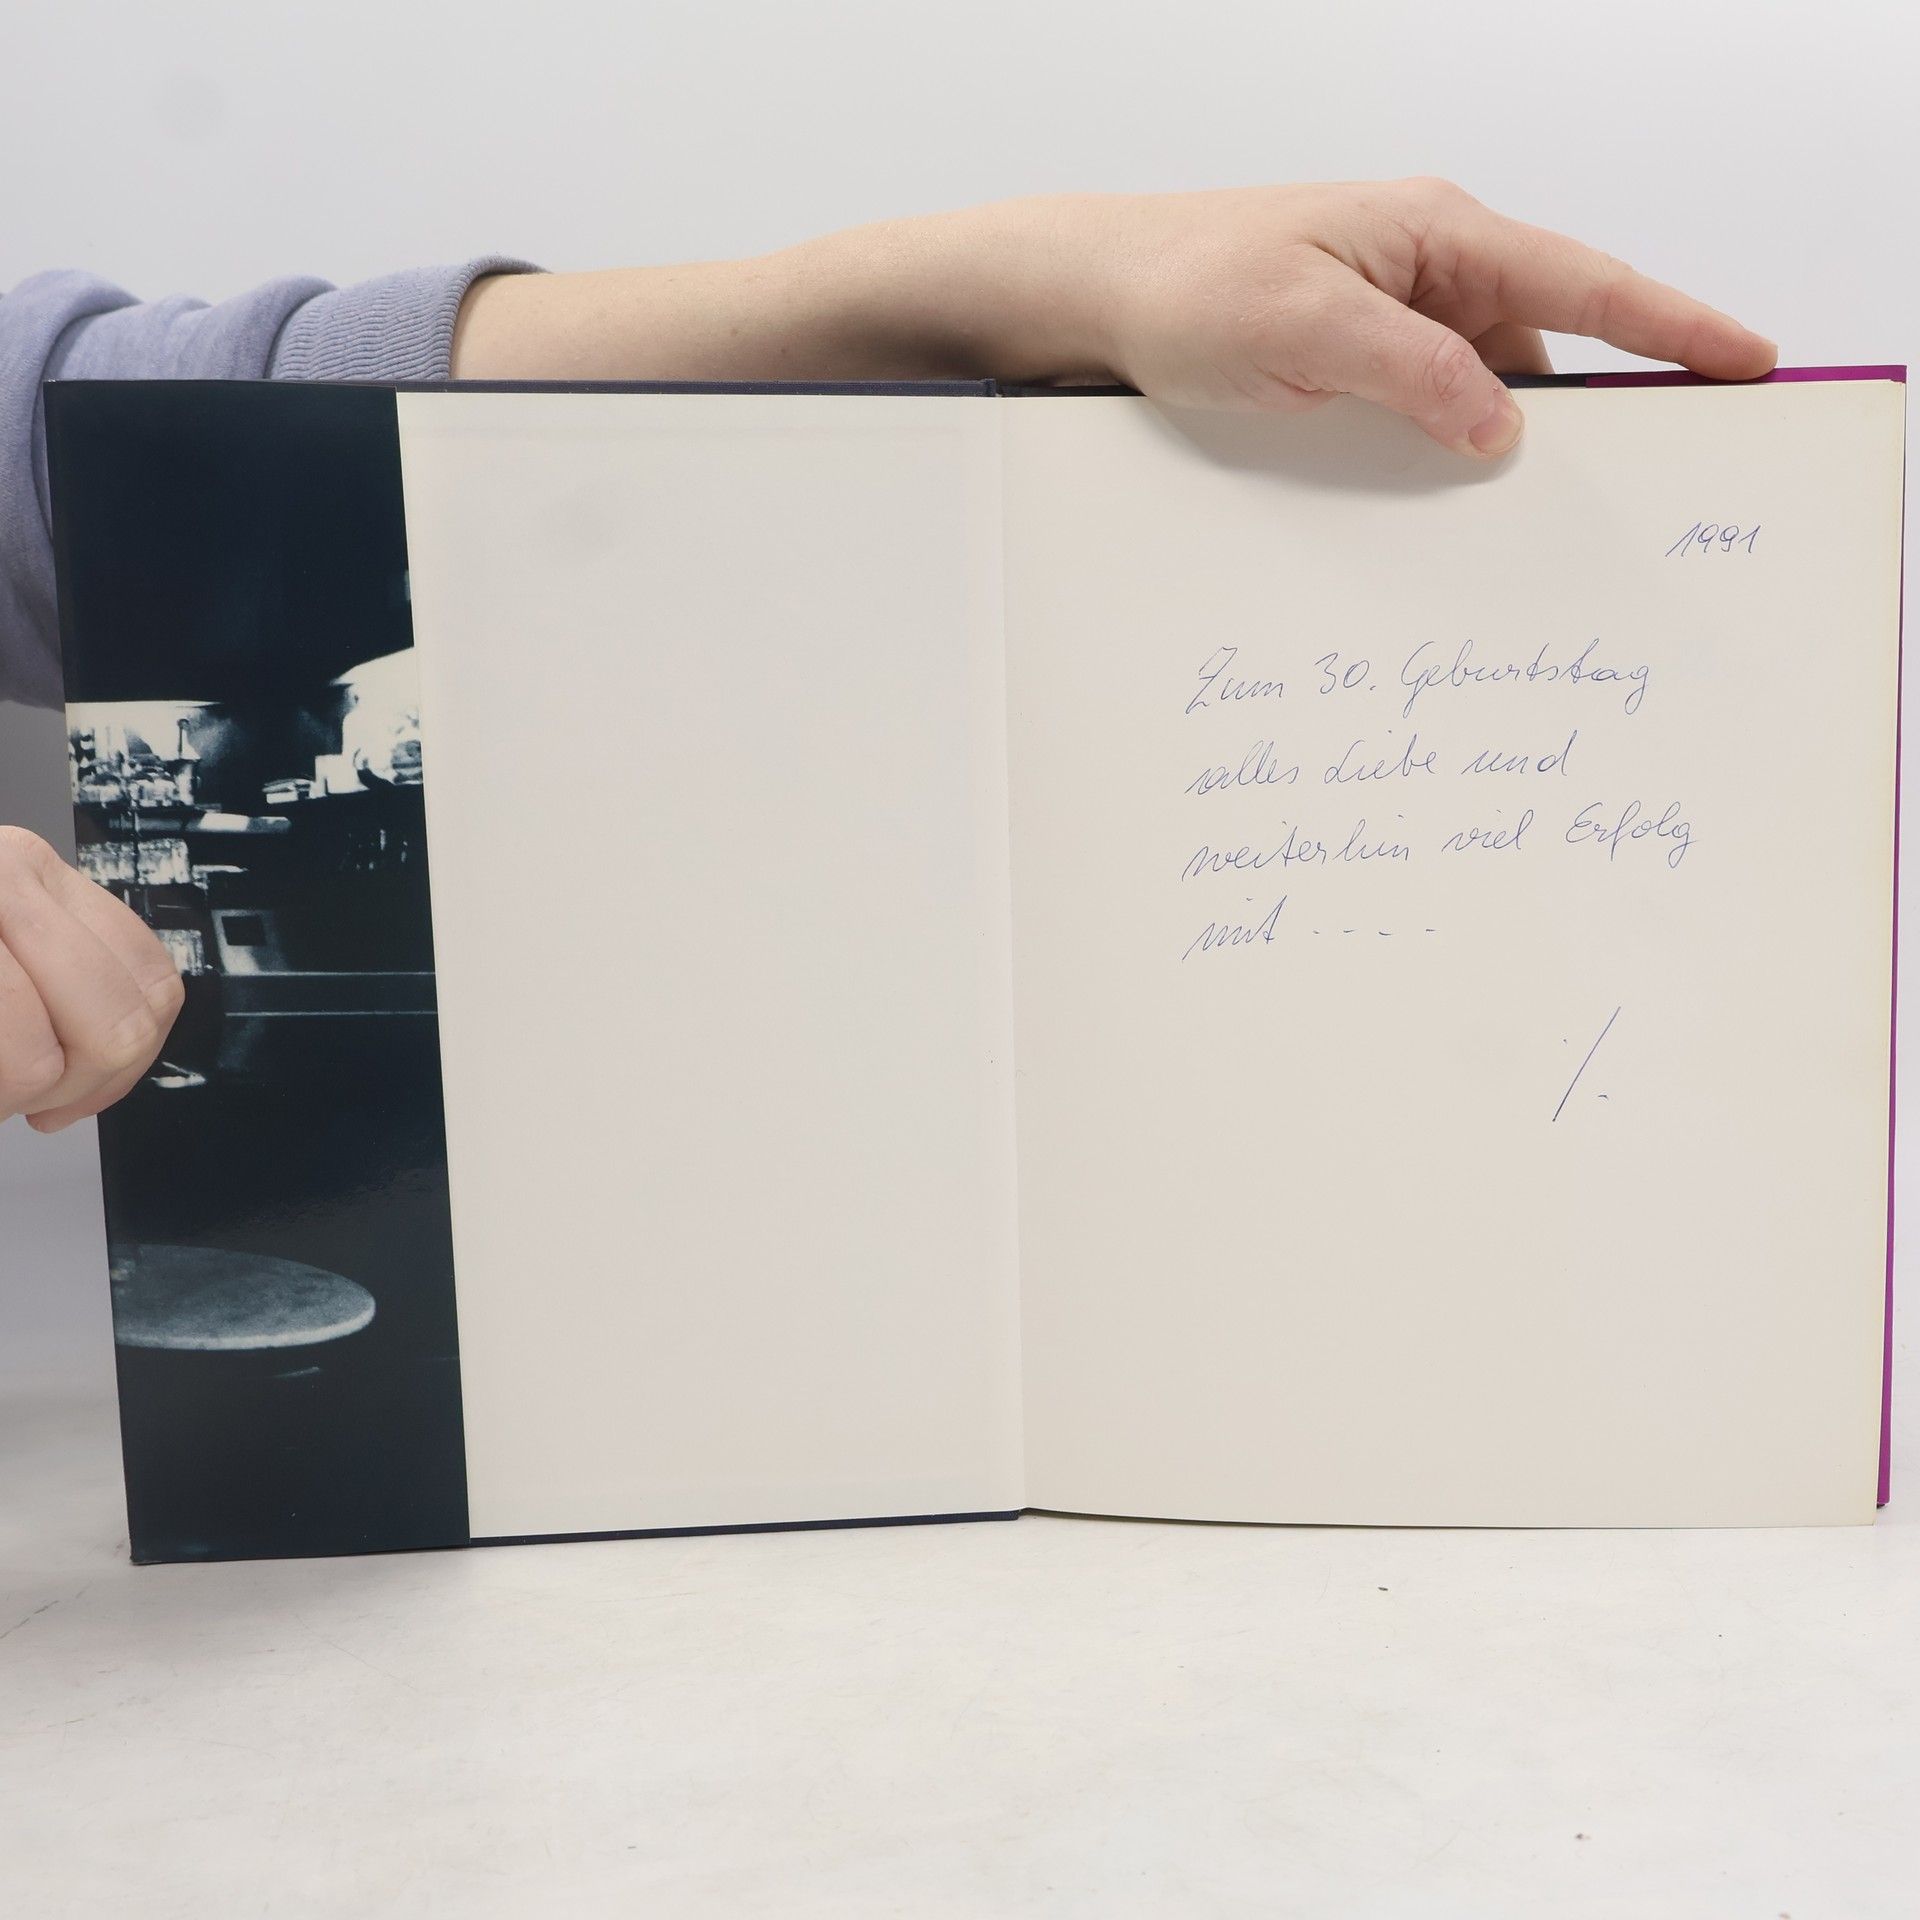 1991
Zum 30. Geburtstag
alles Liebe und
weiterhin viel Erfolg
mit ----
./.